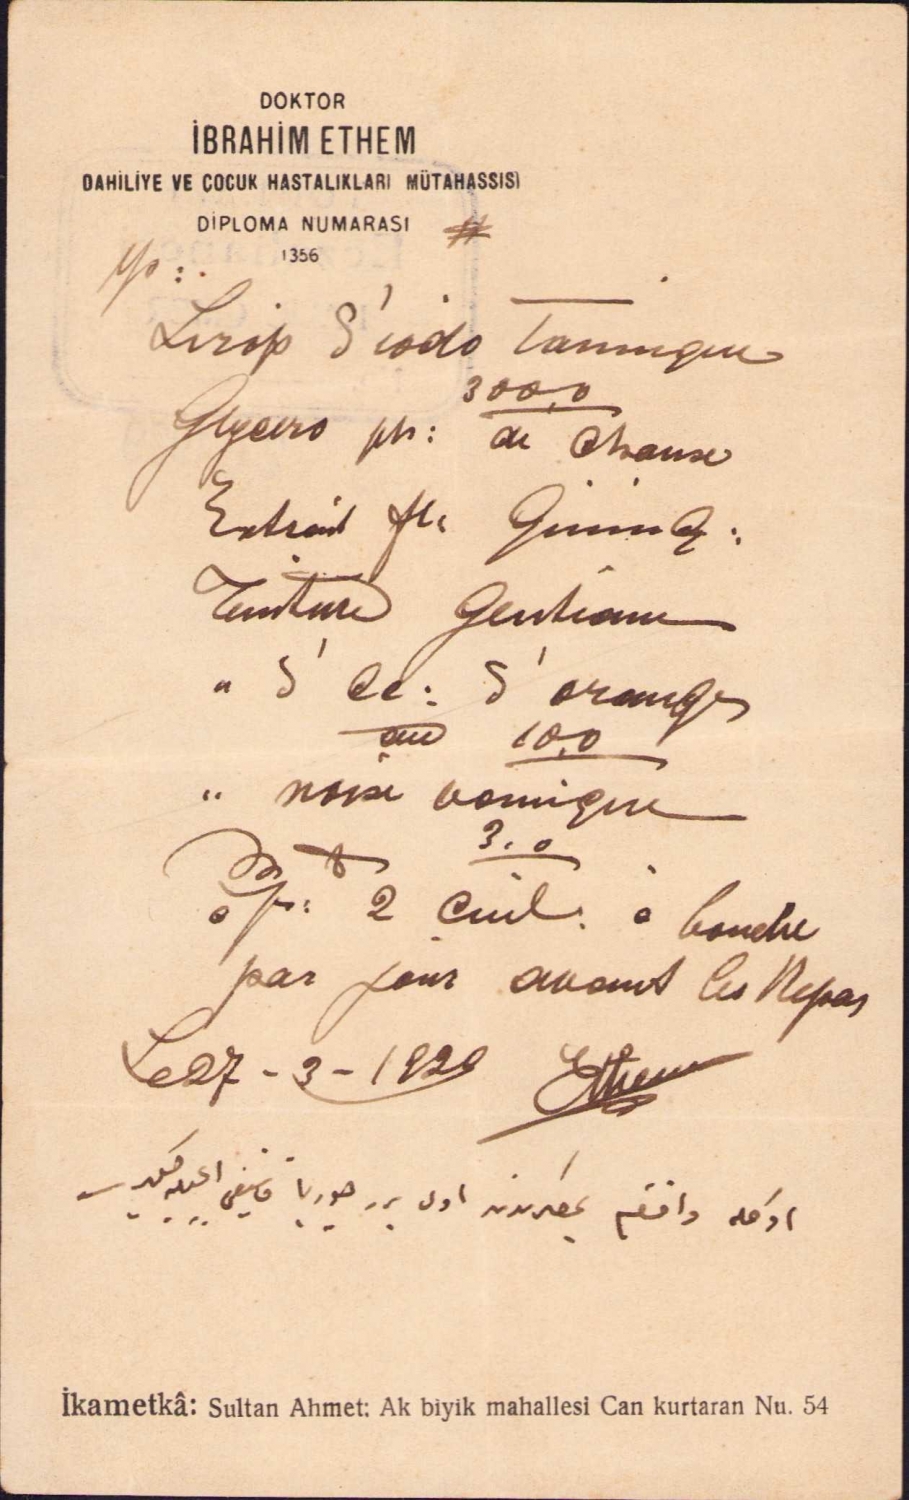 DOKTOR
İBRAHİM ETHEM
DAHİLİYE VE ÇOCUK HASTALIKLARI MÜTAHASSISI
DİPLOMA NUMARASI
1356
Sirop d'iodo Tannique
300,0
Glycero ph: de Chaux
Extrait fl: Quinq:
Teinture Gentiane
" d' éc: d'orange
aa 10,0
" noix vomique
3,0
2 cuil: à bouche
par jour avant les Repas
Le 27-3-1929 Ethem
اویله واقشام یمكدن اول برر چوربا قاشیغی
İkametkâ: Sultan Ahmet: Ak biyik mahallesi Can kurtaran Nu. 54